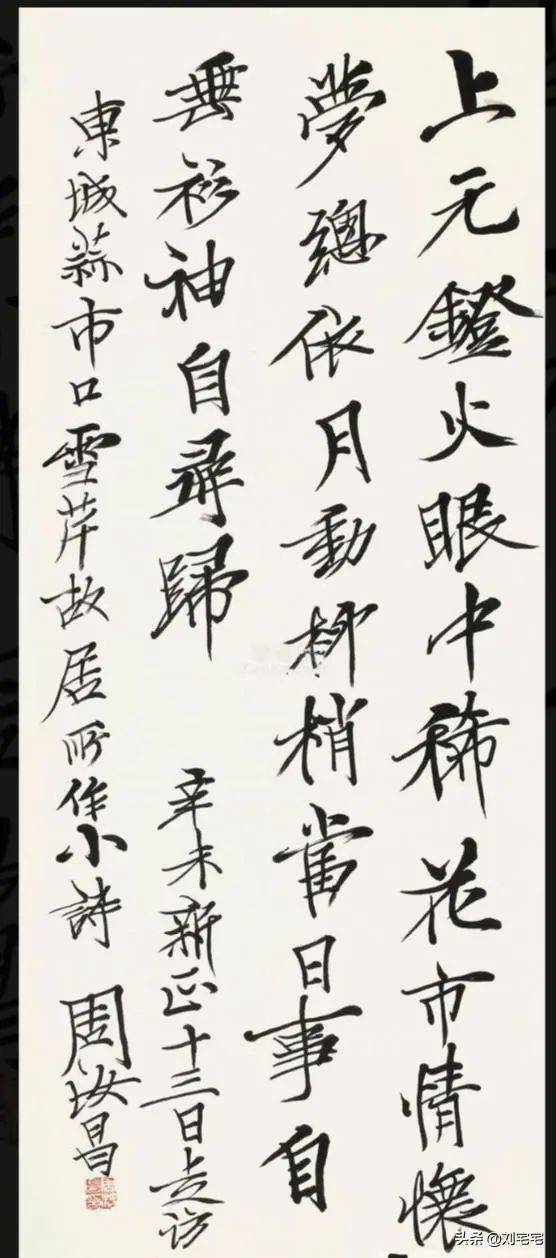 上元鐙火眼中稀花市情懷
夢總依月動柳梢當日事自
垂衫袖自尋歸
辛未新正十三日走訪
東城蒜市口雪芹故居所作小詩 周汝昌
头条 @刘宅宅